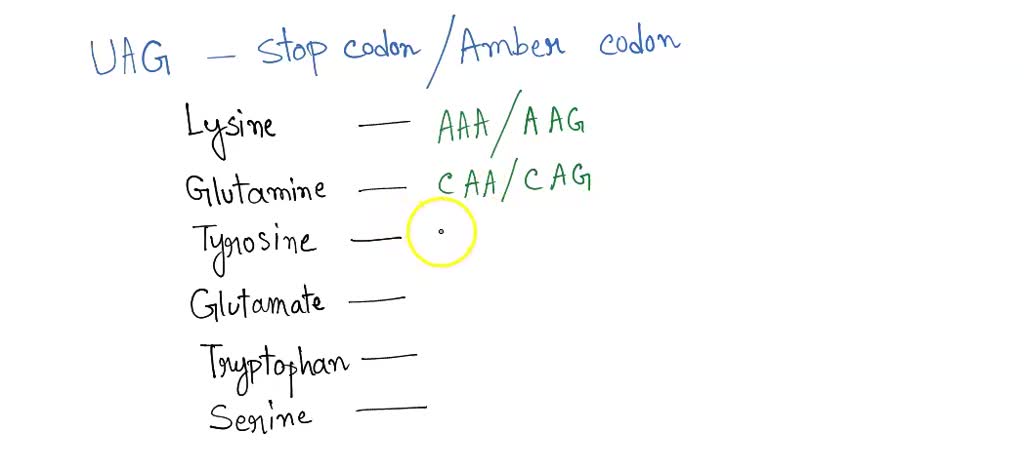 UAG - Stop codon / Amber codon
Lysine — AAA / AAG
Glutamine — CAA / CAG
Tyrosine —
Glutamate —
Tryptophan —
Serine —